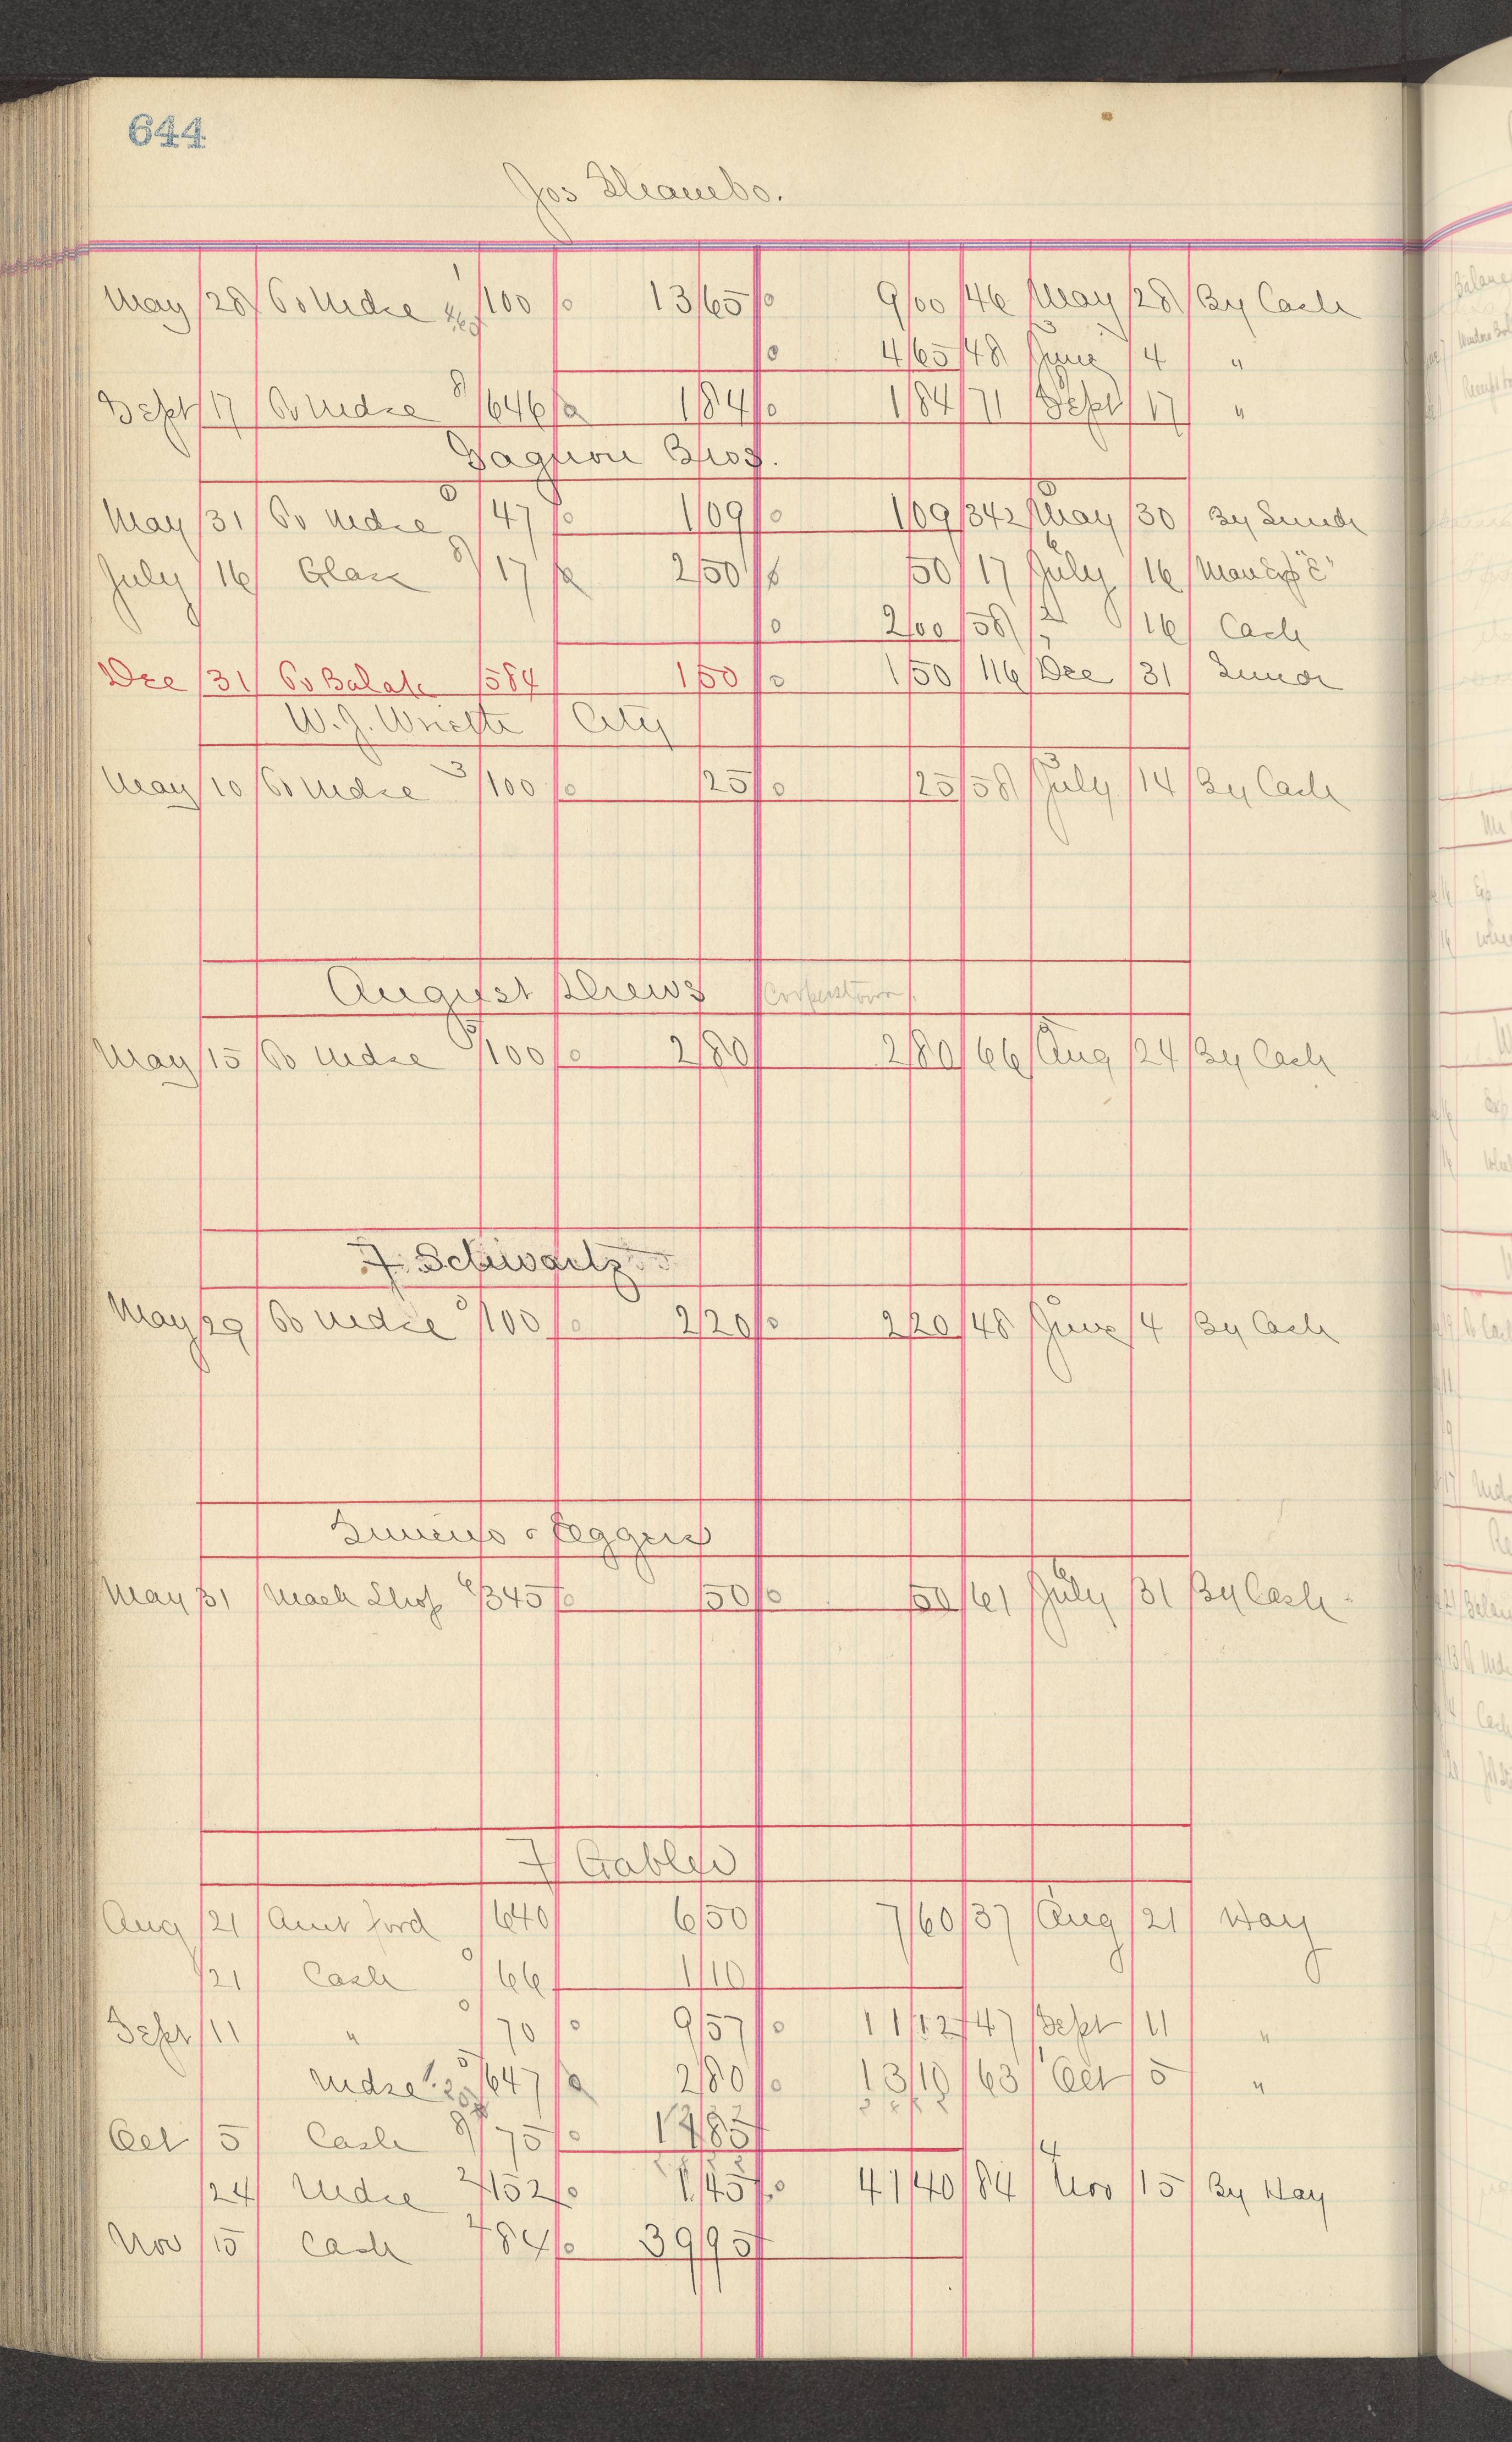 644
Jos
May 28 To Mdse 1 100 13 65 9 00 46 May 28 By Cash
4 65 48 June 4 "
Sept 17 To Mdse 8 646 1 84 1 84 71 Sept 17 "
Gagnon Bros.
May 31 To Mdse 0 47 1 09 1 09 342 May 30 By
July 16 Glass 8 17 2 50 50 17 July 16 "E"
2 00 58 16 Cash
Dec 31 To 584 1 50 1 50 116 Dec 31
W. J. City
May 10 To Mdse 3 100 25 25 58 July 14 By Cash
August Krews Cooperstown
May 15 To Mdse 100 2 80 2 80 66 Aug 24 By Cash
F. Schwartz
May 29 To Mdse 0 100 2 20 2 20 48 June 4 By Cash
May 31 Mach Shop 6 345 50 50 61 July 31 By Cash
F Gabler
Aug 21 Amt ford 640 6 50 7 60 37 Aug 21 Hay
21 Cash 0 66 1 10
Sept 11 " 0 70 9 57 11 12 47 Sept 11 "
Mdse 647 2 80 13 18 63 Oct 5 "
Oct 5 Cash 8 75
24 Mdse 2 152 1 45 41 40 84 Nov 15 By Hay
Nov 15 Cash 2 84 39 95